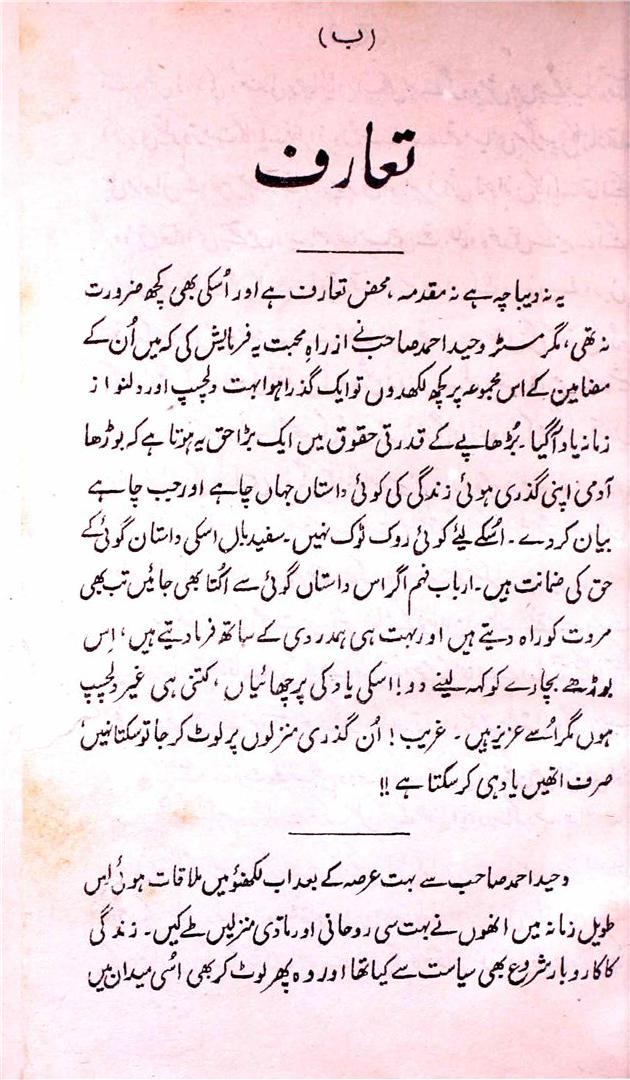 (ب)
تعارف
یہ نہ دیباچہ ہے نہ مقدمہ، محض تعارف ہے اور اُسکی بھی کچھ ضرورت
نہ تھی، مگر مسٹر وحید احمد صاحب نے از راہِ محبت یہ فرمایش کی کہ میں اُن کے
مضامین کے اس مجموعہ پر کچھ لکھدوں تو ایک گذرا ہوا بہت دلچسپ اور دلنواز
زمانہ یاد آگیا۔ بُڑھاپے کے قدرتی حقوق میں ایک بڑا حق یہ ہوتا ہے کہ بوڑھا
آدمی اپنی گذری ہوئی زندگی کی کوئی داستاں جہاں چاہے اور جب چاہے
بیان کردے۔ اُسکے لیئے کوئی روک ٹوک نہیں۔ سفید بال اسکی داستان گوئی کے
حق کی ضمانت ہیں۔ ارباب فہم اگر اس داستاں گوئی سے اُکتا بھی جائیں تب بھی
مروت کو راہ دیتے ہیں اور بہت ہی ہمدردی کے ساتھ فرما دیتے ہیں، اِس
بوڑھے بچارے کو کہہ لینے دو! اسکی یاد کی پرچھائیاں، کتنی ہی غیر دلچسپ
ہوں مگر اُسے عزیز ہیں۔ غریب! اُن گذری منزلوں پر لوٹ کر جا تو سکتا نہیں؛
صرف انھیں یاد ہی کر سکتا ہے !!
وحید احمد صاحب سے بہت عرصہ کے بعد اب لکھنؤ میں ملاقات ہوئی اِس
طویل زمانہ میں انھوں نے بہت سی روحانی اور مادّی منزلیں طے کیں۔ زندگی
کا کاروبار شروع بھی سیاست سے کیا تھا اور وہ پھر لوٹ کر بھی اُسی میدان میں